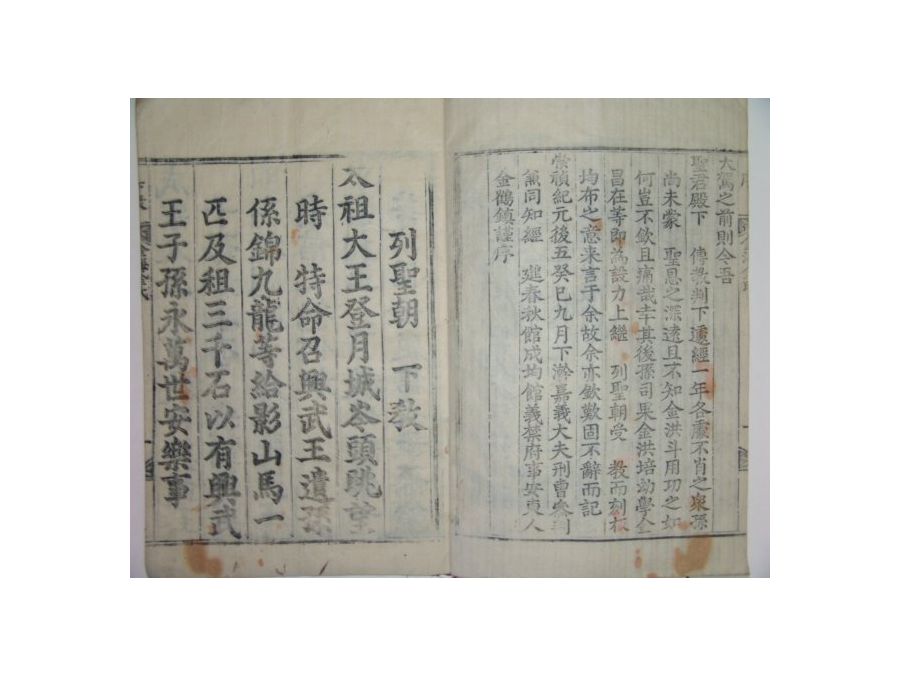 大駕之前則今吾
聖君殿下 傳敎判下遽經一年各處不肖之衆孫
尙未蒙 聖恩之深遠且不知金洪斗用功之如
何豈不欽且痛哉幸其後孫司果金洪培幼學金
昌在等卽爲設力上繼 列聖朝受 敎而刻板
均布之意来言于余故余亦欽歎固不辭而記
崇禎紀元後五癸巳九月下澣嘉義大夫刑曹參判
兼同知經 筵春秋館成均館義禁府事安東人
金鶴鎮謹序
列聖朝 下敎
太祖大王登月城岑頭眺望
時 特命召興武王遺孫
係錦九龍等給影山馬一
匹及租三千石以有興武
王子孫永萬世安樂事